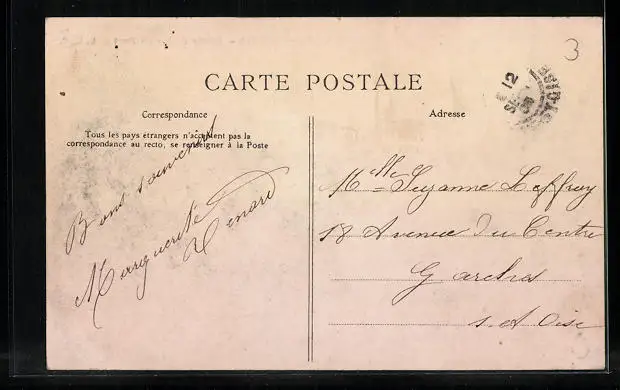 3
CARTE POSTALE
12
Correspondance
Adresse
Tous les pays étrangers n'acceptent pas la
correspondance au recto, se renseigner à la Poste
Bons souvenirs
Marguerite
Menard
Melle Suzanne Leffray
18 Avenue du Centre
Garches
S. et Oise